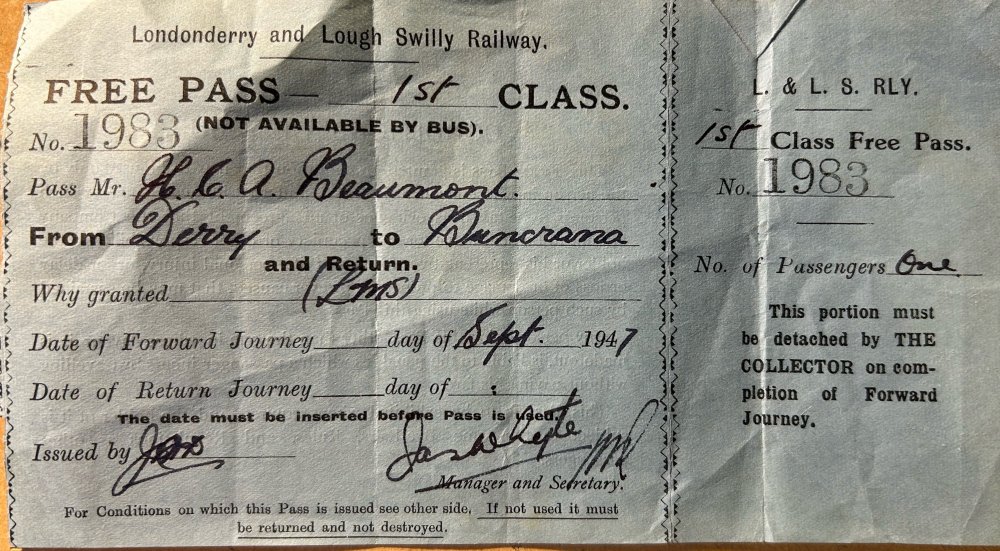 Londonderry and Lough Swilly Railway.
FREE PASS — 1st CLASS.
No. 1983 (NOT AVAILABLE BY BUS).
Pass Mr. H. C. A. Beaumont.
From Derry to Buncrana
and Return.
Why granted (LMS)
Date of Forward Journey day of Sept. 1947
Date of Return Journey day of :
The date must be inserted before Pass is used.
Issued by
Jas Whyte
Manager and Secretary.
For Conditions on which this Pass is issued see other side. If not used it must
be returned and not destroyed.
L. & L. S. RLY.
1st Class Free Pass.
No. 1983
No. of Passengers One
This portion must
be detached by THE
COLLECTOR on com-
pletion of Forward
Journey.